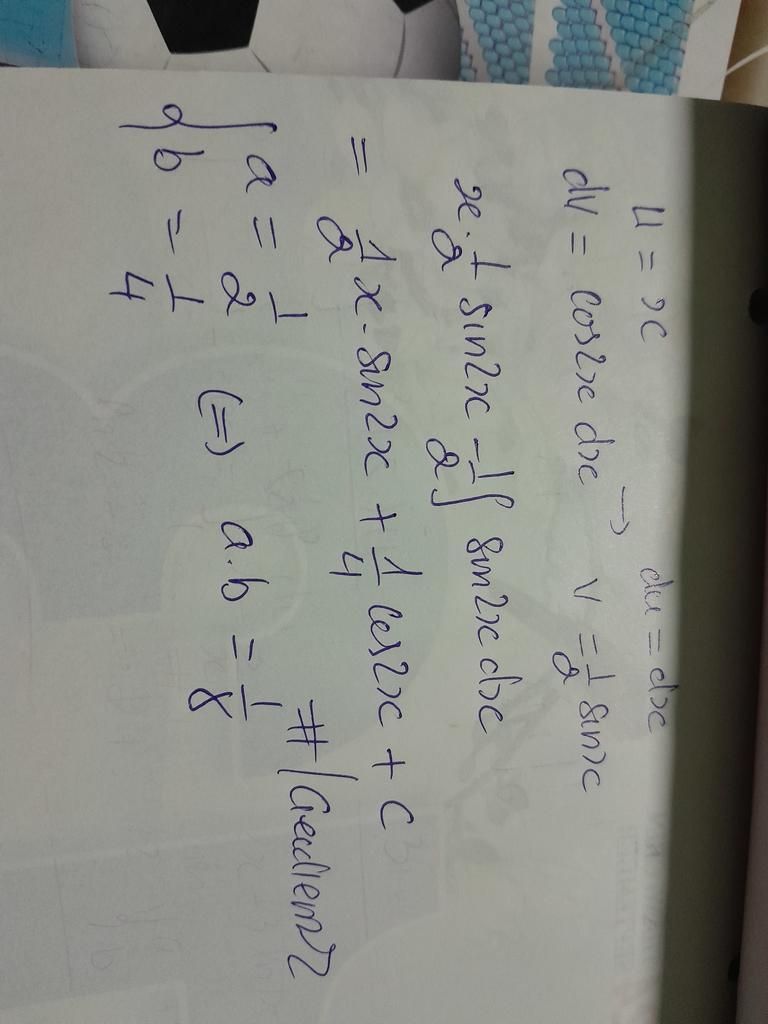 u = x du = dx
dv = cos2x dx → v = 1/2 sinx
x. 1/2 sin2x - 1/2 ∫ sin2x dx
= 1/2 x. sin2x + 1/4 cos2x + C
{ a = 1/2
b = 1/4 (=) a.b = 1/8